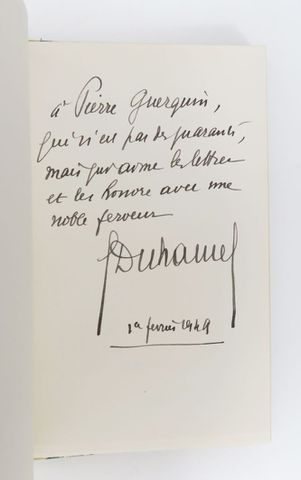 à Pierre Guerquin,
qui n'est pas des quarante,
mais qui aime les lettres
et les honore avec une
noble ferveur
GDuhamel
1er février 1949